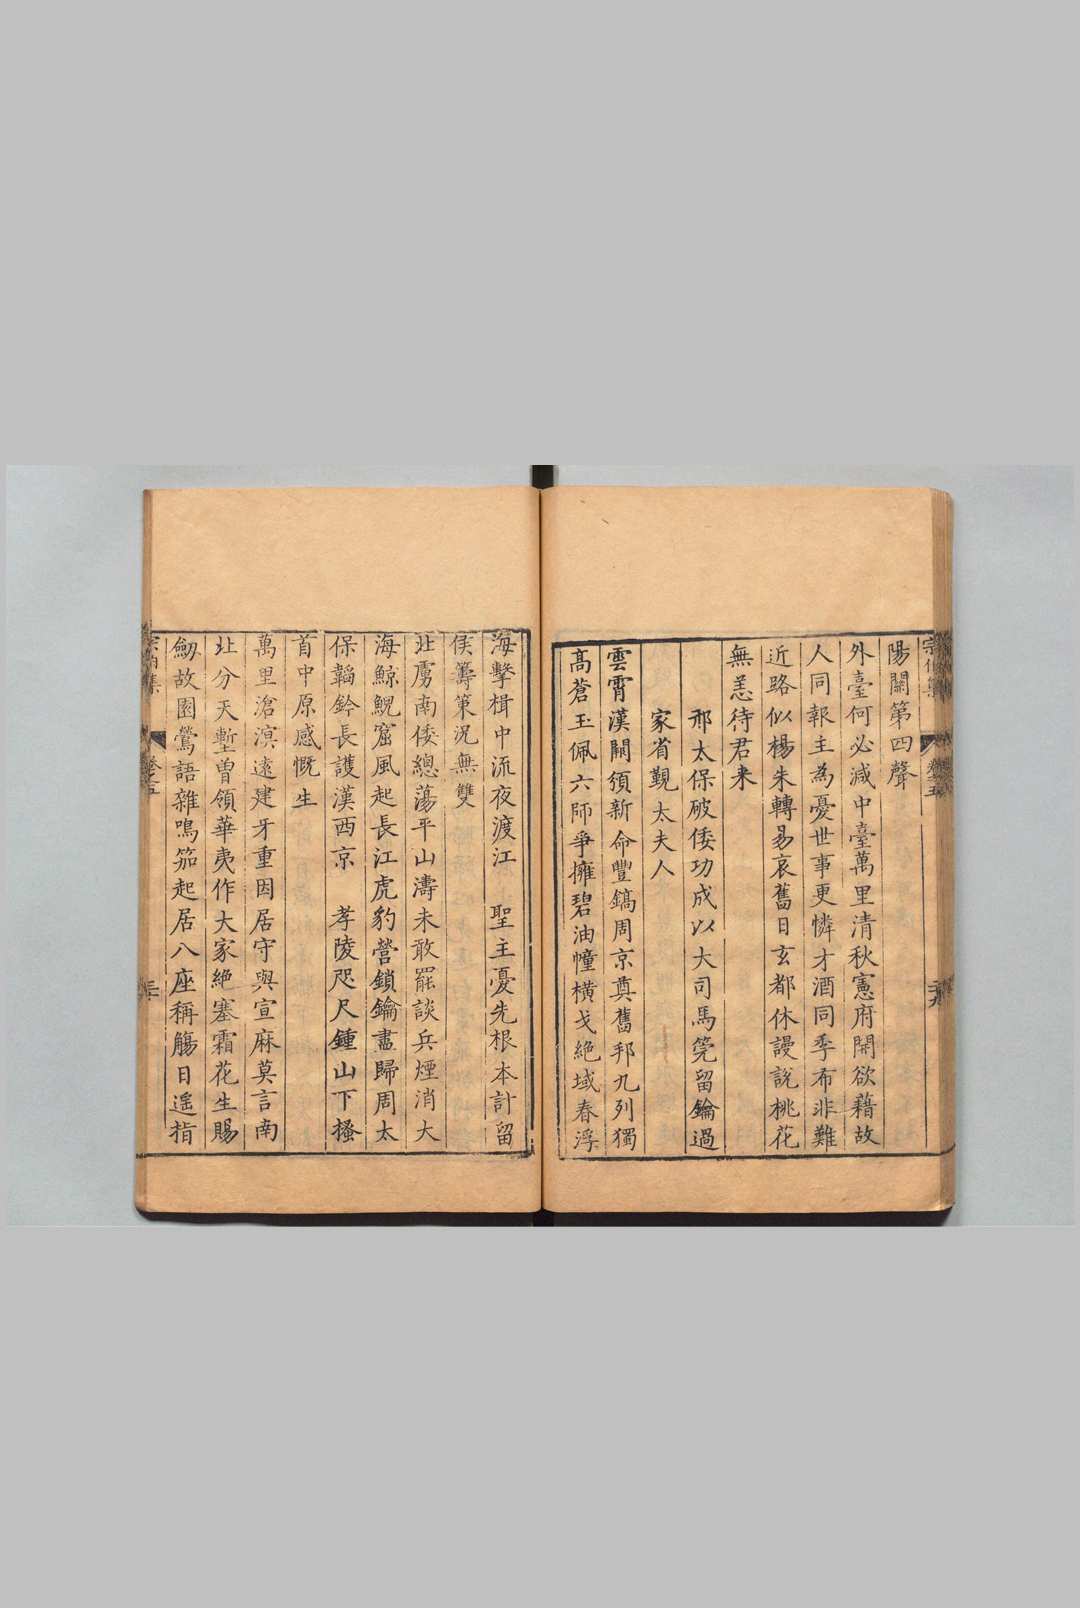 宗伯集
卷之五
二十九
陽關第四聲
外臺何必減中臺萬里清秋憲府開欲藉故
人同報主為憂世事更憐才酒同季布非難
近路似楊朱轉易哀舊日玄都休謾說桃花
無恙待君来
邢太保破倭功成以大司馬筦留鑰過
家省覲太夫人
雲霄漢闕須新命豐鎬周京奠舊邦九列獨
高蒼玉佩六師爭擁碧油幢橫戈絶域春浮
海擊楫中流夜渡江 聖主憂先根本計留
侯籌策况無雙
北虜南倭總蕩平山濤未敢罷談兵煙消大
海鯨鯢窟風起長江虎豹營鎖鑰盡歸周太
保韜鈐長護漢西京 孝陵咫尺鍾山下搔
首中原感慨生
萬里滄溟遠建牙重因居守與宣麻莫言南
北分天塹曽領華夷作大家絶塞霜花生賜
劔故園鶯語雜鳴笳起居八座稱觴日遥指
宗伯集
卷之五